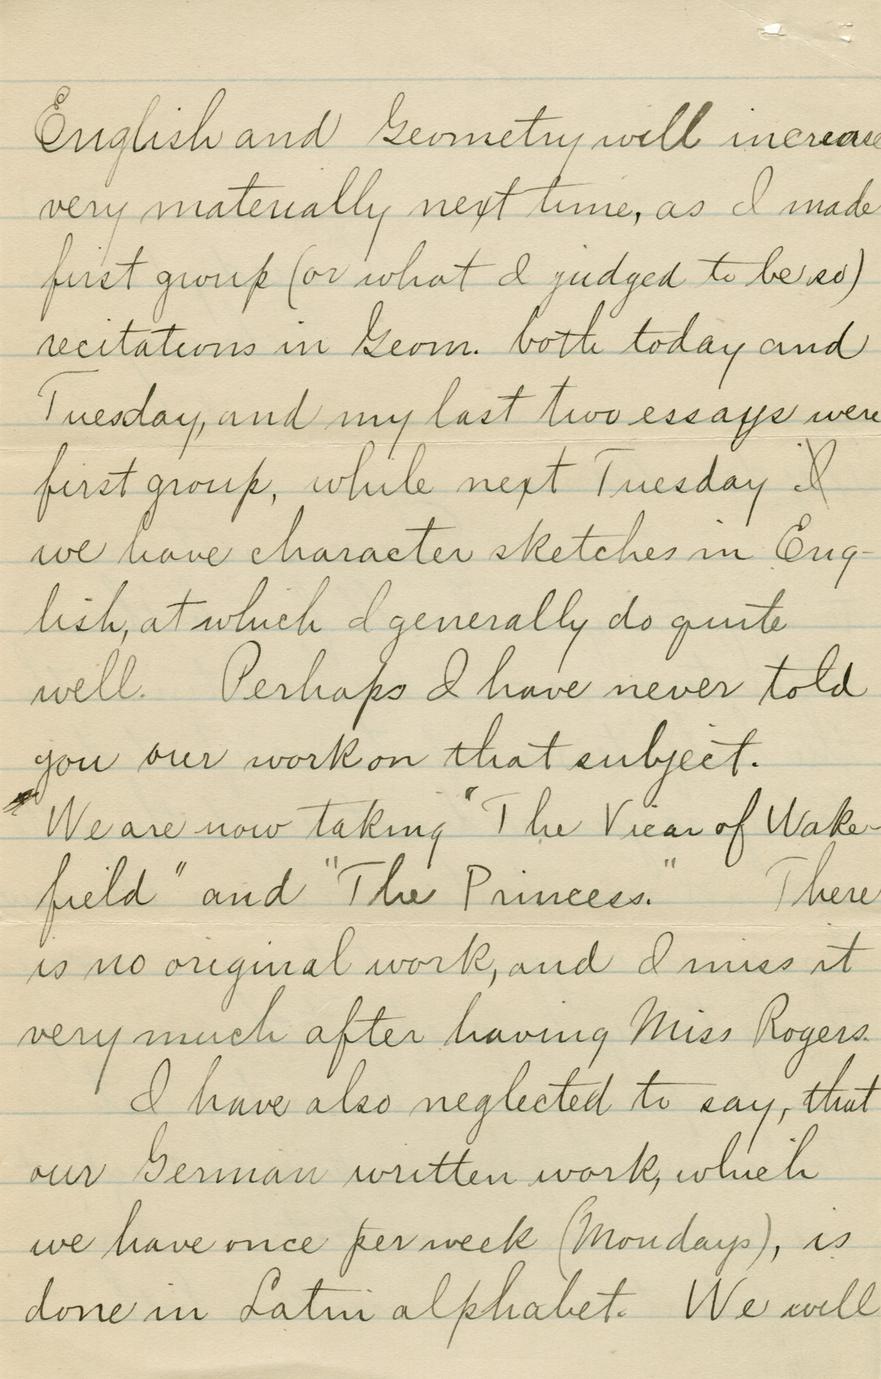 English and Geometry will increase
very materially next time, as I made
first group (or what I judged to be so)
recitations in Geom. both today and
Tuesday, and my last two essays were
first group, while next Tuesday I
we have character sketches in Eng-
lish, at which I generally do quite
well. Perhaps I have never told
you our work on that subject.
We are now taking "The Vicar of Wake-
field" and "The Princess." There
is no original work, and I miss it
very much after having Miss Rogers.
I have also neglected to say, that
our German written work, which
we have once per week (Mondays), is
done in Latin alphabet. We will